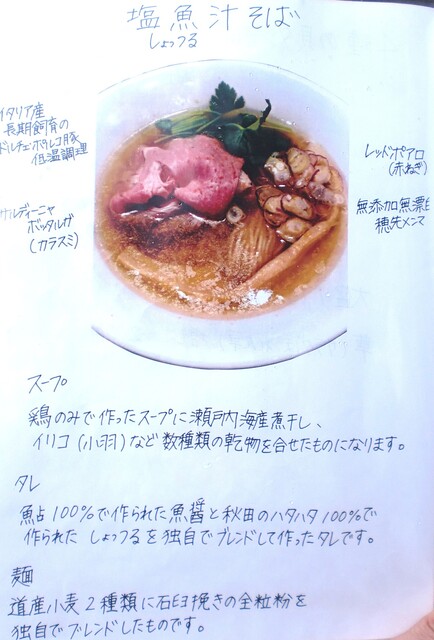 塩魚汁そば
しょっつる
イタリア産
長期飼育の
ドルチェ・ポルコ豚
低温調理
サルディーニャ
ボッタルガ
(カラスミ)
レッドポアロ
(赤ねぎ)
無添加無漂白
穂先メンマ
スープ
鶏のみで作ったスープに瀬戸内海産煮干し、
イリコ(小羽)など数種類の乾物を合せたものになります。
タレ
魚占100%で作られた魚醤と秋田のハタハタ100%で
作られたしょっつるを独自でブレンドして作ったタレです。
麺
道産小麦2種類に石臼挽きの全粒粉を
独自でブレンドしたものです。